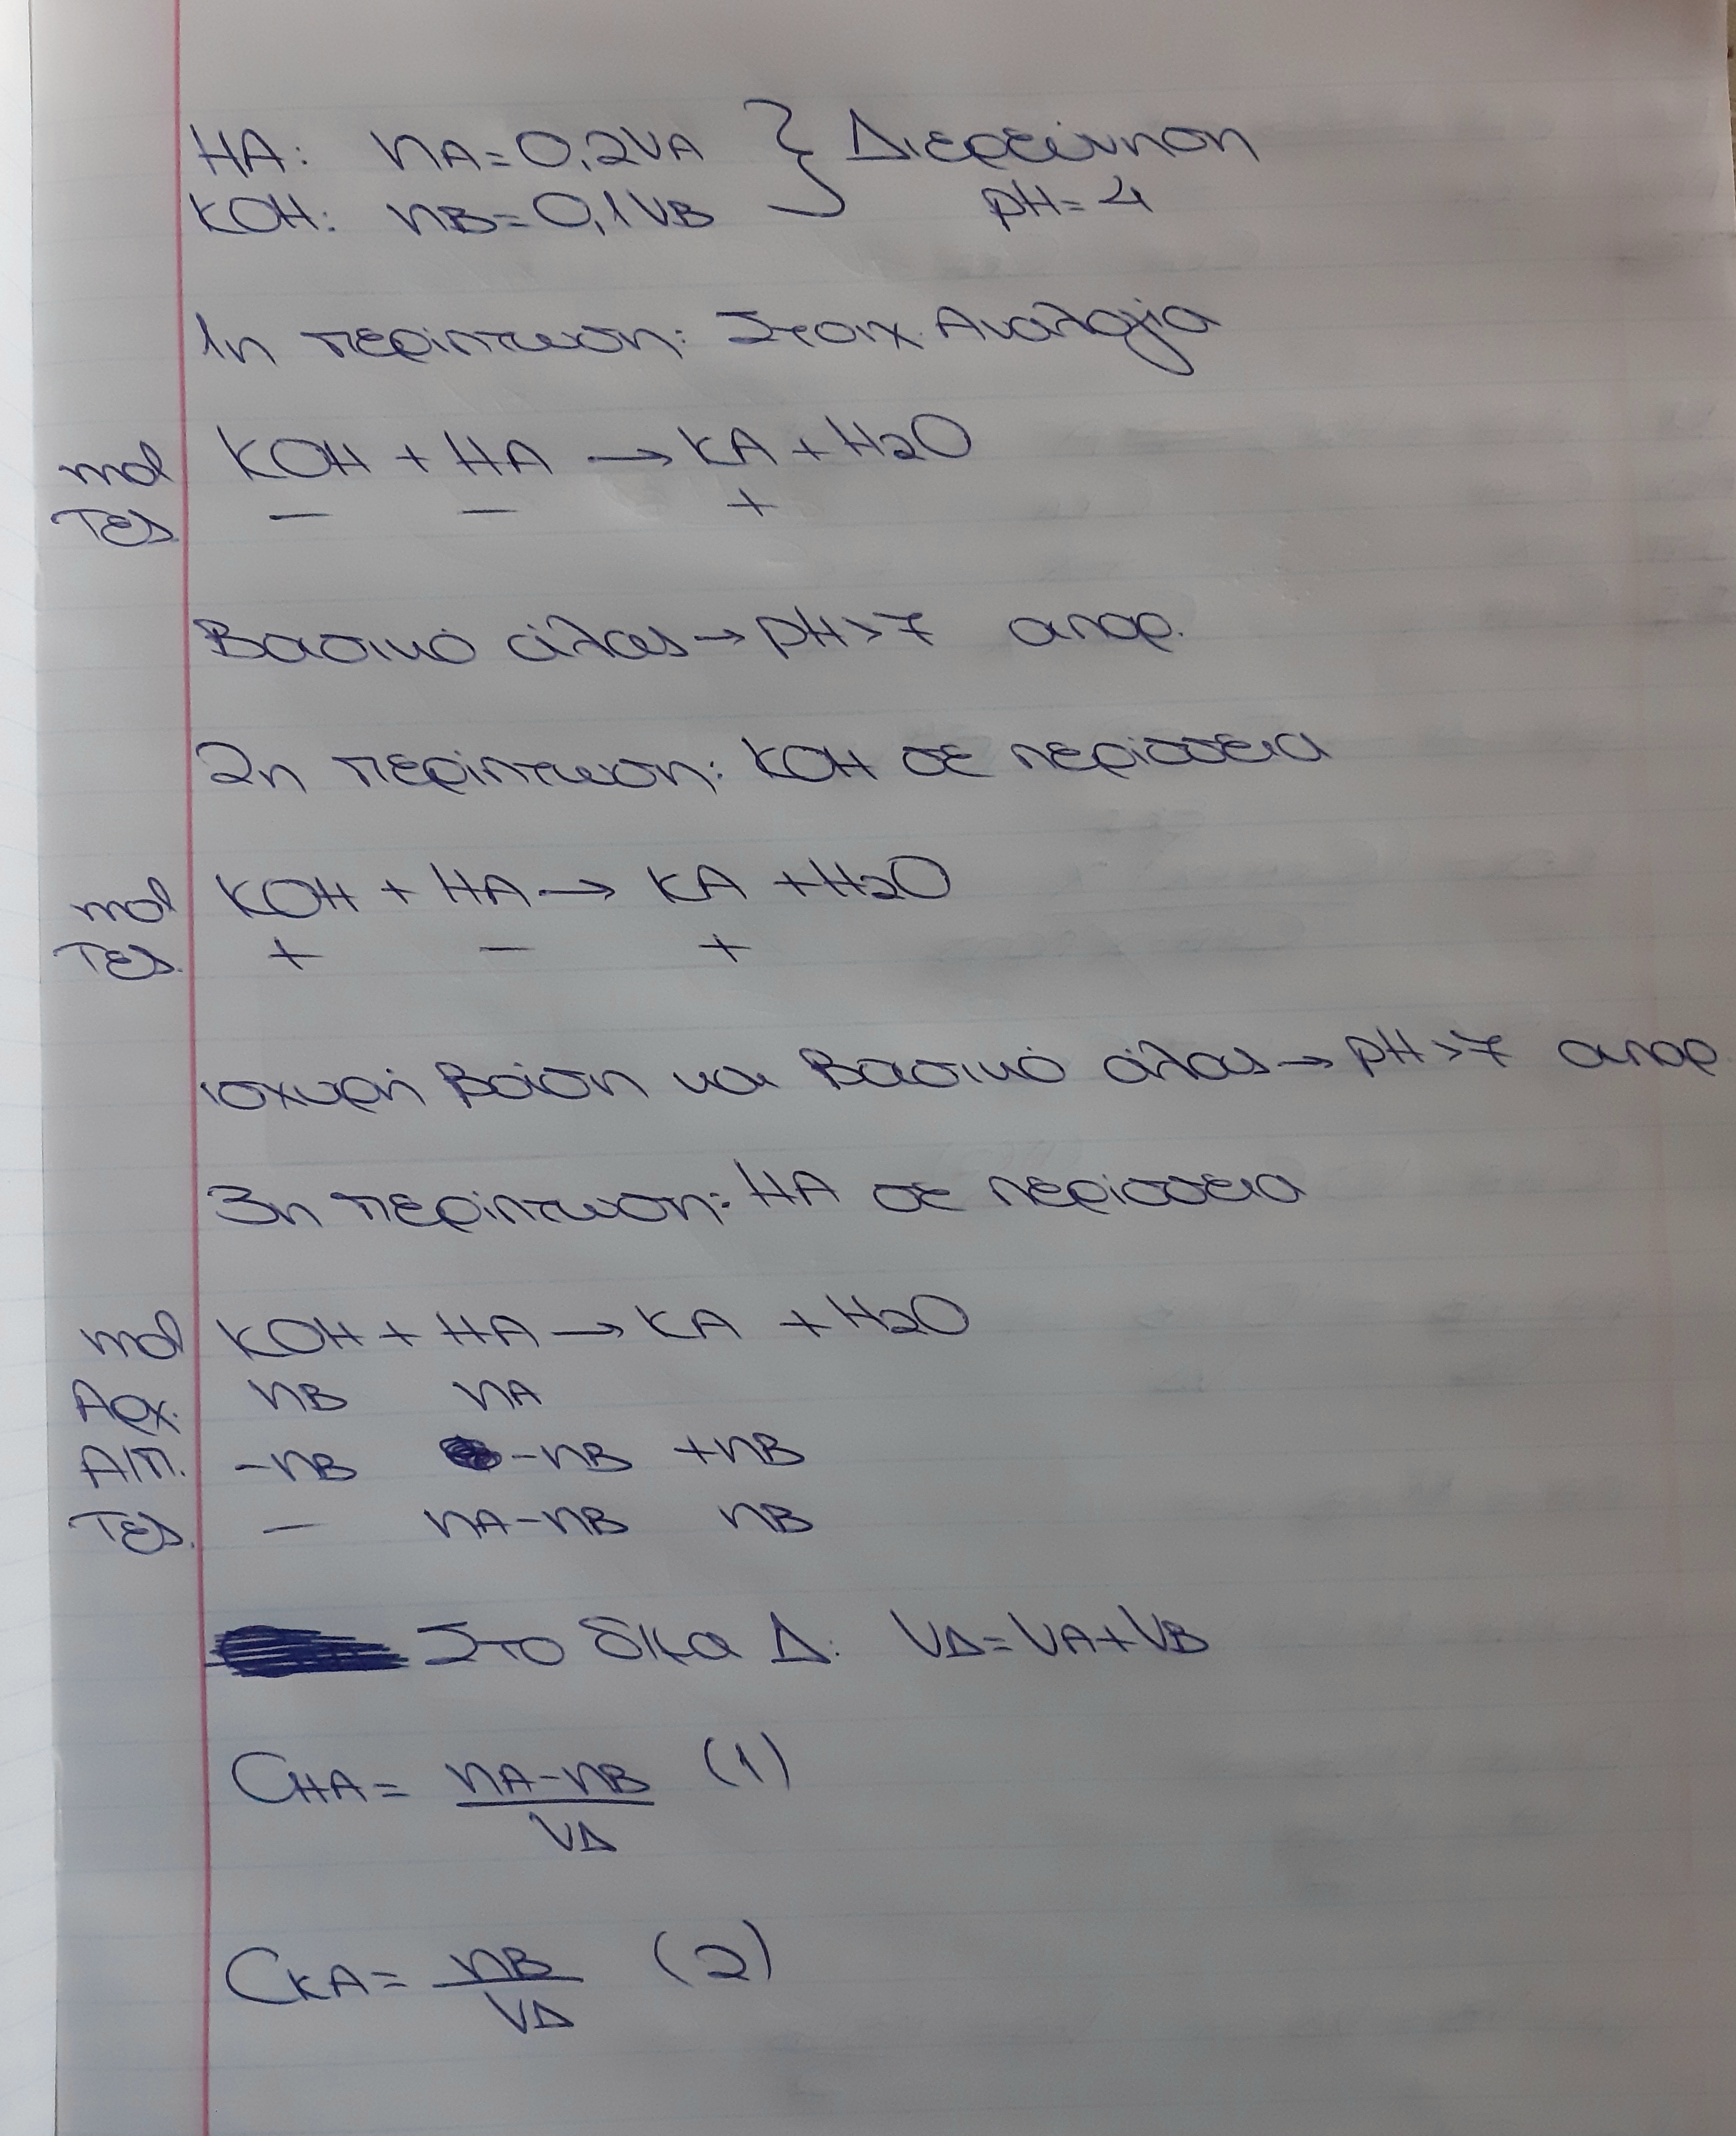 HA: nA=0,2VA } Διερεύνηση
KOH: nB=0,1VB pH=4
1η περίπτωση: Στοιχ. Αναλογία
mol KOH + HA → KA + H2O
Τελ. — — +
Βασικό άλας → pH>7 απορ.
2η περίπτωση: KOH σε περίσσεια
mol KOH + HA → KA + H2O
Τελ. + — +
ισχυρή βάση και βασικό άλας → pH>7 απορ.
3η περίπτωση: HA σε περίσσεια
mol KOH + HA → KA + H2O
Αρχ. nB nA
Α/Π. -nB -nB +nB
Τελ. — nA-nB nB
Στο δ/μα Δ: VΔ=VA+VB
CHA= nA-nB (1)
VΔ
CKA= nB (2)
VΔ